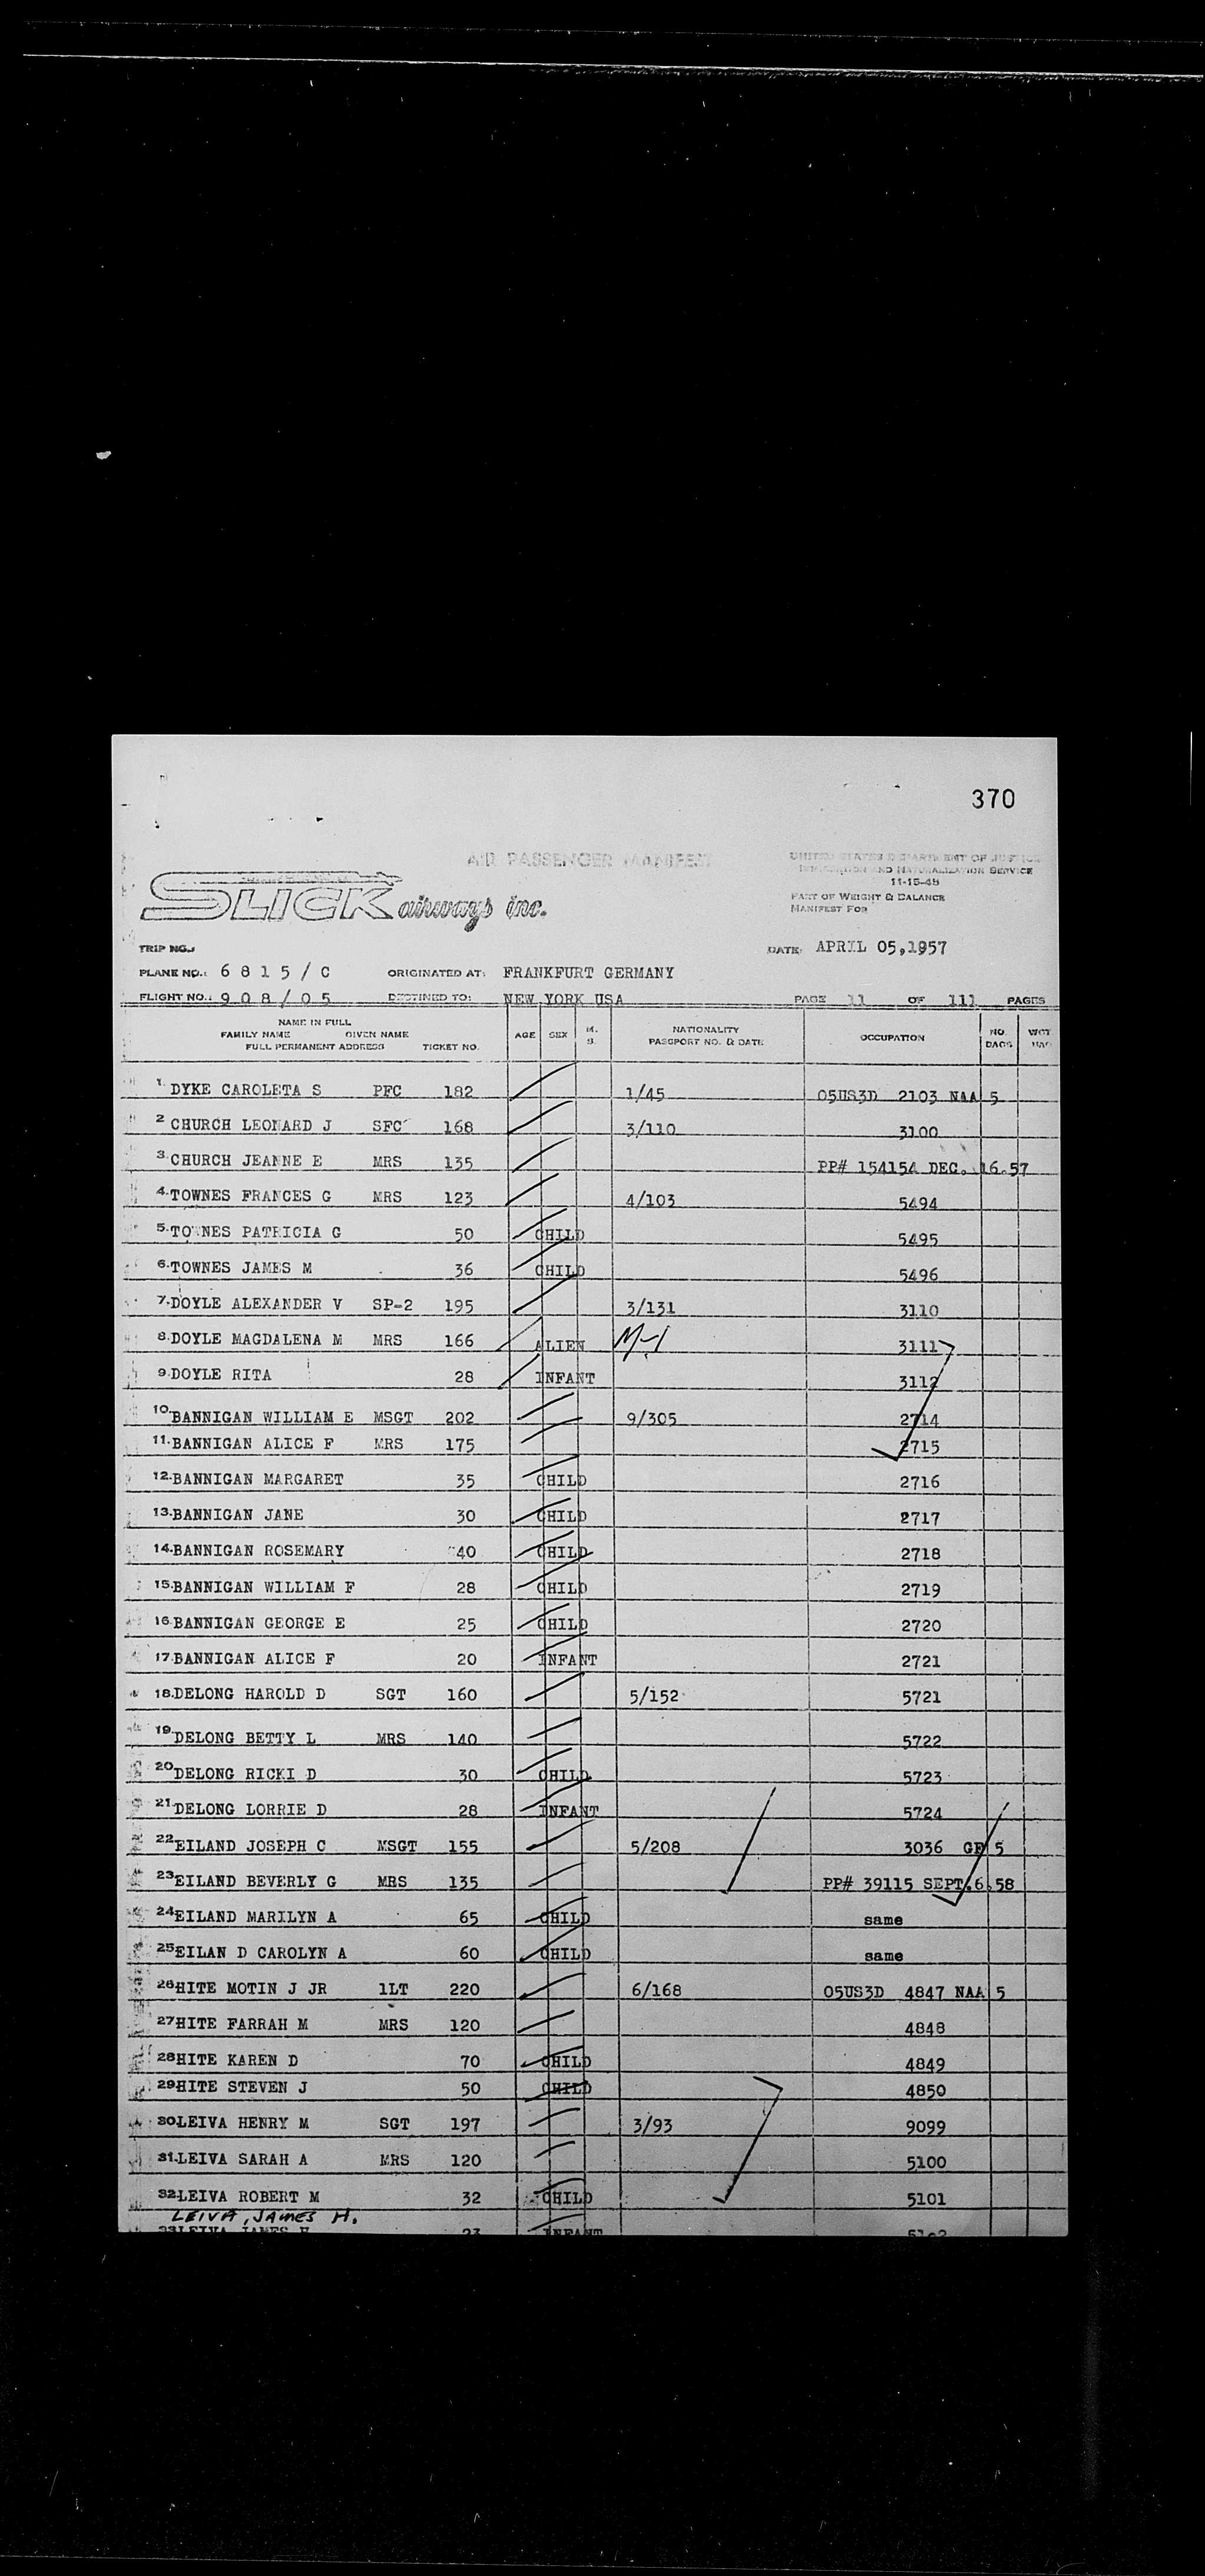 370
AIR PASSENGER MANIFEST
UNITED STATES DEPARTMENT OF JUSTICE
IMMIGRATION AND NATURALIZATION SERVICE
11-15-48
PART OF WEIGHT & BALANCE
MANIFEST FOR
SLICK airways inc.
TRIP NO.:
DATE: APRIL 05,1957
PLANE NO.: 6815/C ORIGINATED AT: FRANKFURT GERMANY
FLIGHT NO.: 908/05 DESTINED TO: NEW YORK USA PAGE 11 OF 111 PAGES
NAME IN FULL
FAMILY NAME GIVEN NAME
FULL PERMANENT ADDRESS TICKET NO. AGE SEX M. S. NATIONALITY PASSPORT NO. & DATE OCCUPATION NO. BAGS WGT
1. DYKE CAROLETA S PFC 182 1/45 05US3D 2103 NAA 5
2 CHURCH LEONARD J SFC 168 3/110 3100
3. CHURCH JEANNE E MRS 135 PP# 154154 DEC. 16.57
4. TOWNES FRANCES G MRS 123 4/103 5494
5. TOWNES PATRICIA G 50 CHILD 5495
6. TOWNES JAMES M 36 CHILD 5496
7. DOYLE ALEXANDER V SP-2 195 3/131 3110
8. DOYLE MAGDALENA M MRS 166 ALIEN M-1 3111
9. DOYLE RITA 28 INFANT 3112
10. BANNIGAN WILLIAM E MSGT 202 9/305 2714
11. BANNIGAN ALICE F MRS 175 2715
12. BANNIGAN MARGARET 35 CHILD 2716
13. BANNIGAN JANE 30 CHILD 2717
14. BANNIGAN ROSEMARY 40 CHILD 2718
15. BANNIGAN WILLIAM F 28 CHILD 2719
16. BANNIGAN GEORGE E 25 CHILD 2720
17. BANNIGAN ALICE F 20 INFANT 2721
18. DELONG HAROLD D SGT 160 5/152 5721
19. DELONG BETTY L MRS 140 5722
20 DELONG RICKI D 30 CHILD 5723
21. DELONG LORRIE D 28 INFANT 5724
22 EILAND JOSEPH C MSGT 155 5/208 3036 GF 5
23 EILAND BEVERLY G MRS 135 PP# 39115 SEPT.6.58
24 EILAND MARILYN A 65 CHILD same
25 EILAN D CAROLYN A 60 CHILD same
26 HITE MOTIN J JR 1LT 220 6/168 05US3D 4847 NAA 5
27 HITE FARRAH M MRS 120 4848
28 HITE KAREN D 70 CHILD 4849
29 HITE STEVEN J 50 CHILD 4850
30 LEIVA HENRY M SGT 197 3/93 9099
31. LEIVA SARAH A MRS 120 5100
32 LEIVA ROBERT M 32 CHILD 5101
LEIVA, JAMES H.
33 LEIVA JAMES H 23 INFANT 5102